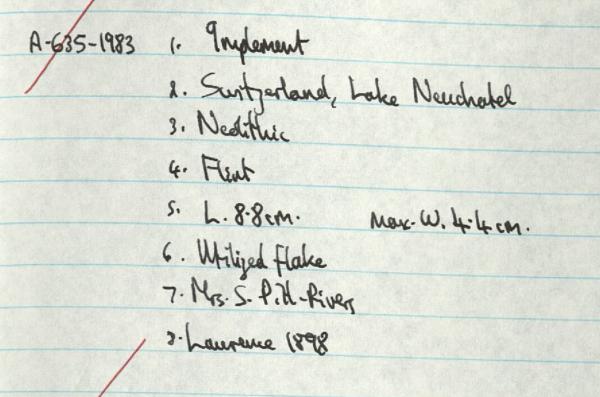 A-635-1983 1. Implement
2. Switzerland, Lake Neuchatel
3. Neolithic
4. Flint
5. L. 8.8cm. Max. W. 4.4cm.
6. Utilized flake
7. Mrs. S. Pitt-Rivers
8. Laurence 1898